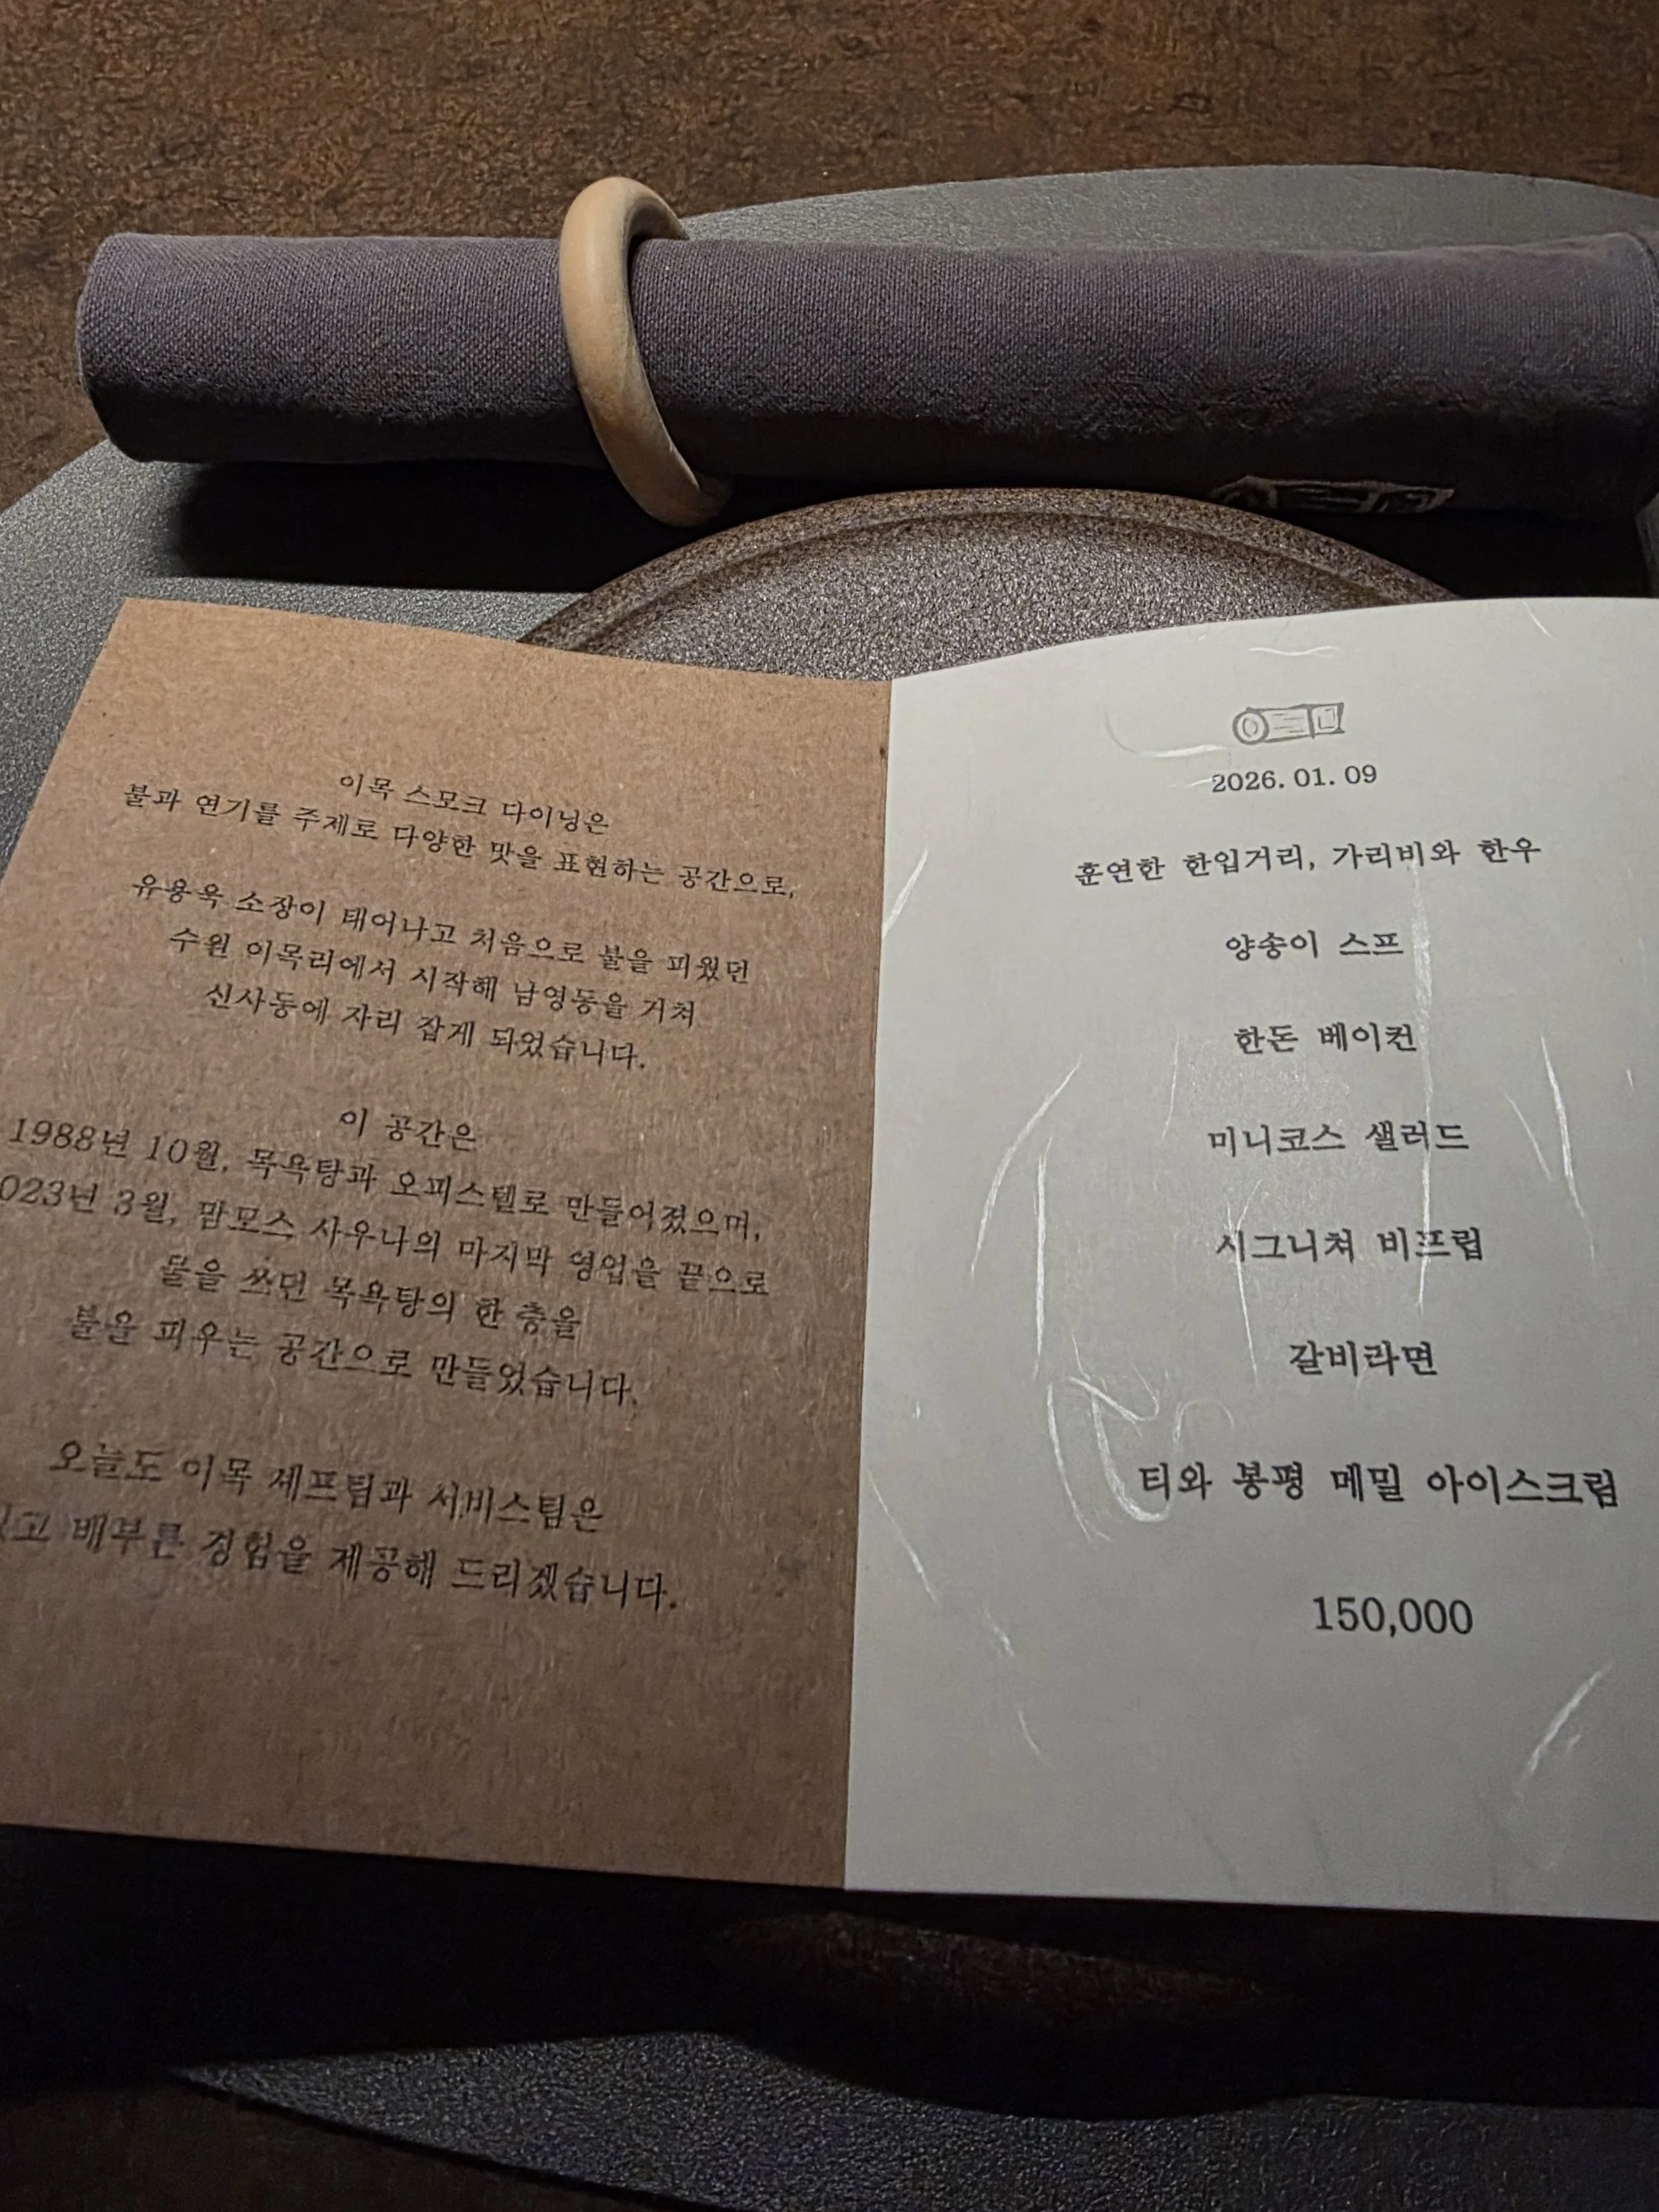 이목 스모크 다이닝은
불과 연기를 주제로 다양한 맛을 표현하는 공간으로,
유용욱 소장이 태어나고 처음으로 불을 피웠던
수원 이목리에서 시작해 남영동을 거쳐
신사동에 자리 잡게 되었습니다.
이 공간은
1988년 10월, 목욕탕과 오피스텔로 만들어졌으며,
023년 3월, 맘모스 사우나의 마지막 영업을 끝으로
물을 쓰던 목욕탕의 한 층을
불을 피우는 공간으로 만들었습니다.
오늘도 이목 셰프팀과 서비스팀은
배부른 경험을 제공해 드리겠습니다.
2026. 01. 09
훈연한 한입거리, 가리비와 한우
양송이 스프
한돈 베이컨
미니코스 샐러드
시그니쳐 비프립
갈비라면
티와 봉평 메밀 아이스크림
150,000